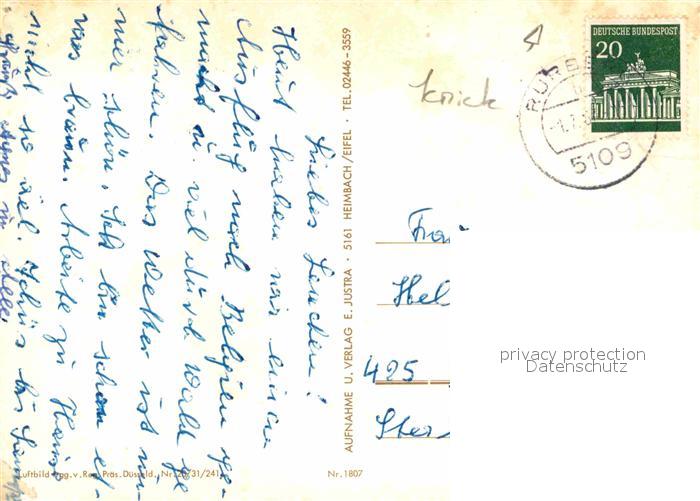 Liebes Lenchen!
Heut haben wir einen
Ausflug nach Belgien ge-
macht u. viel durch Wald ge
fahren. Das Wetter ist im-
mer schön, ich bin schon et-
was braun. Arbeite zu Haus
nicht so viel. Tschüs bis
Gruß Agnes
AUFNAHME U. VERLAG E. JUSTRA · 5161 HEIMBACH/EIFEL · TEL. 02446-3559
Luftbild v. Reg. Präs. Düsseld. Nr.
Nr. 1807
Knick
DEUTSCHE BUNDESPOST
20
5109
Hel
425
privacy protection
Datenschutz